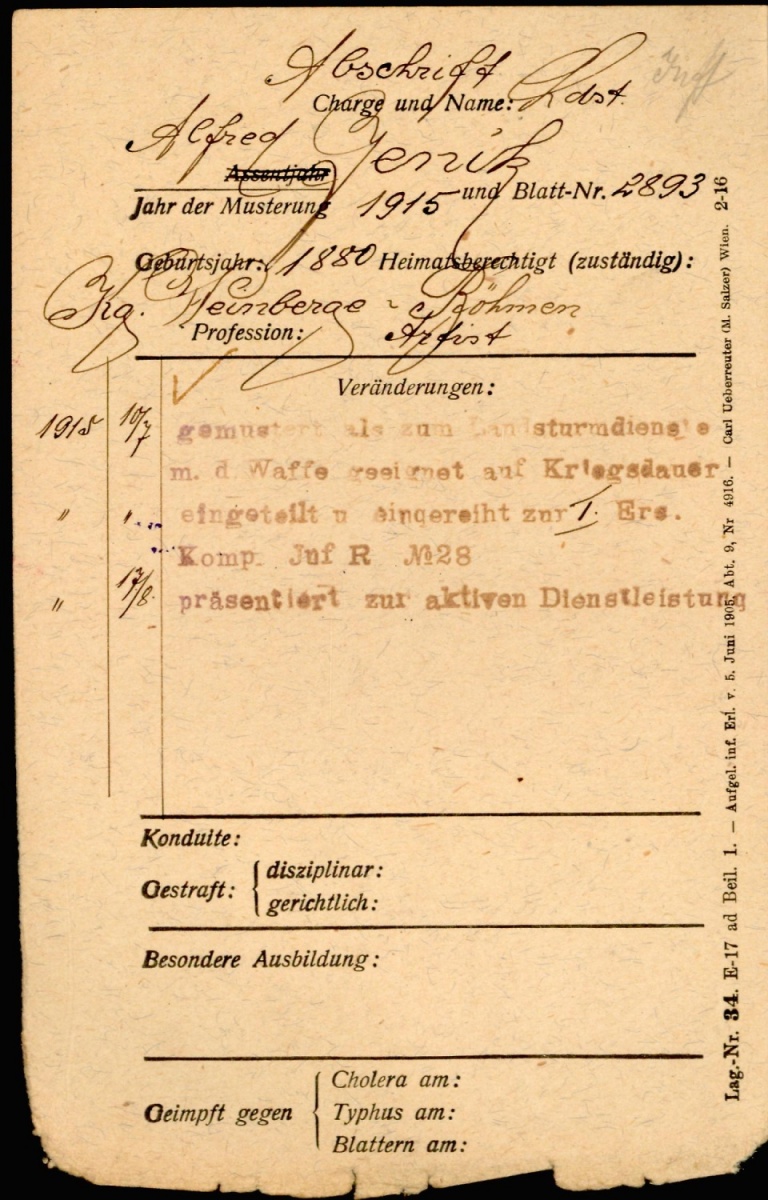 Abschrift
Charge und Name: Ldst.
Alfred Jenik
Assentjahr
Jahr der Musterung 1915 und Blatt-Nr. 2893
Geburtsjahr: 1880 Heimatsberechtigt (zuständig):
Kg. Weinberge - Böhmen
Profession: Artist
Veränderungen:
1915 10/7 gemustert als zum Landsturmdienste
m. d. Waffe geeignet auf Kriegsdauer
" " eingeteilt u eingereiht zur I. Ers.
Komp. Juf R №28
" 17/8. präsentiert zur aktiven Dienstleistung
Konduite:
Gestraft: disziplinar:
gerichtlich:
Besondere Ausbildung:
Geimpft gegen Cholera am:
Typhus am:
Blattern am:
Lag.-Nr. 34. E-17 ad Beil. 1. — Aufgel. inf. Erl. v. 5. Juni 1905, Abt. 9, Nr 4916. — Carl Ueberreuter (M. Salzer) Wien. 2-16